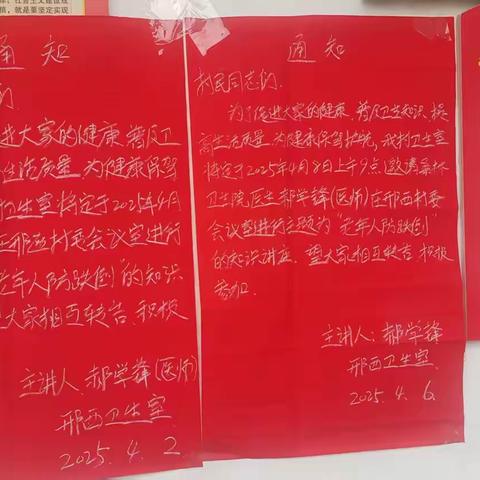 是要坚定实现
通知
们
进大家的健康、普及卫
生活质量、为健康保驾
卫生室将定于2025年4月
在邢西村委会议室进行
老年人防跌倒"的知识
大家相互转告、积极
主讲人、郝学锋(医师)
邢西卫生室
2025.4.2
通知
村民同志们、
为了促进大家的健康、普及卫生知识、提
高生活质量、为健康保驾护航、我村卫生室
将定于2025年4月8日上午9点、邀请
卫生院医生郝学锋(医师)在邢西村委
会议室进行主题为"老年人防跌倒"
的知识讲座、望大家相互转告、积极
参加、
主讲人：郝学锋
邢西卫生室、
2025.4.6